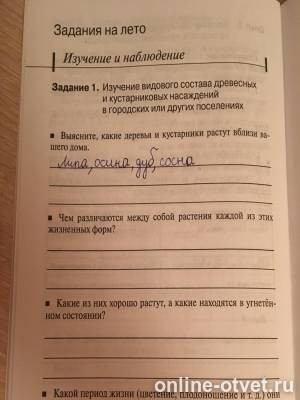 Задания на лето
Изучение и наблюдение
Задание 1. Изучение видового состава древесных
и кустарниковых насаждений
в городских или других поселениях
▪ Выясните, какие деревья и кустарники растут вблизи ва-
шего дома.
Липа, осина, дуб, сосна
▪ Чем различаются между собой растения каждой из этих
жизненных форм?
▪ Какие из них хорошо растут, а какие находятся в угнетён-
ном состоянии?
▪ Какой период жизни (цветение, плодоношение и т. д.) они
online-otvet.ru